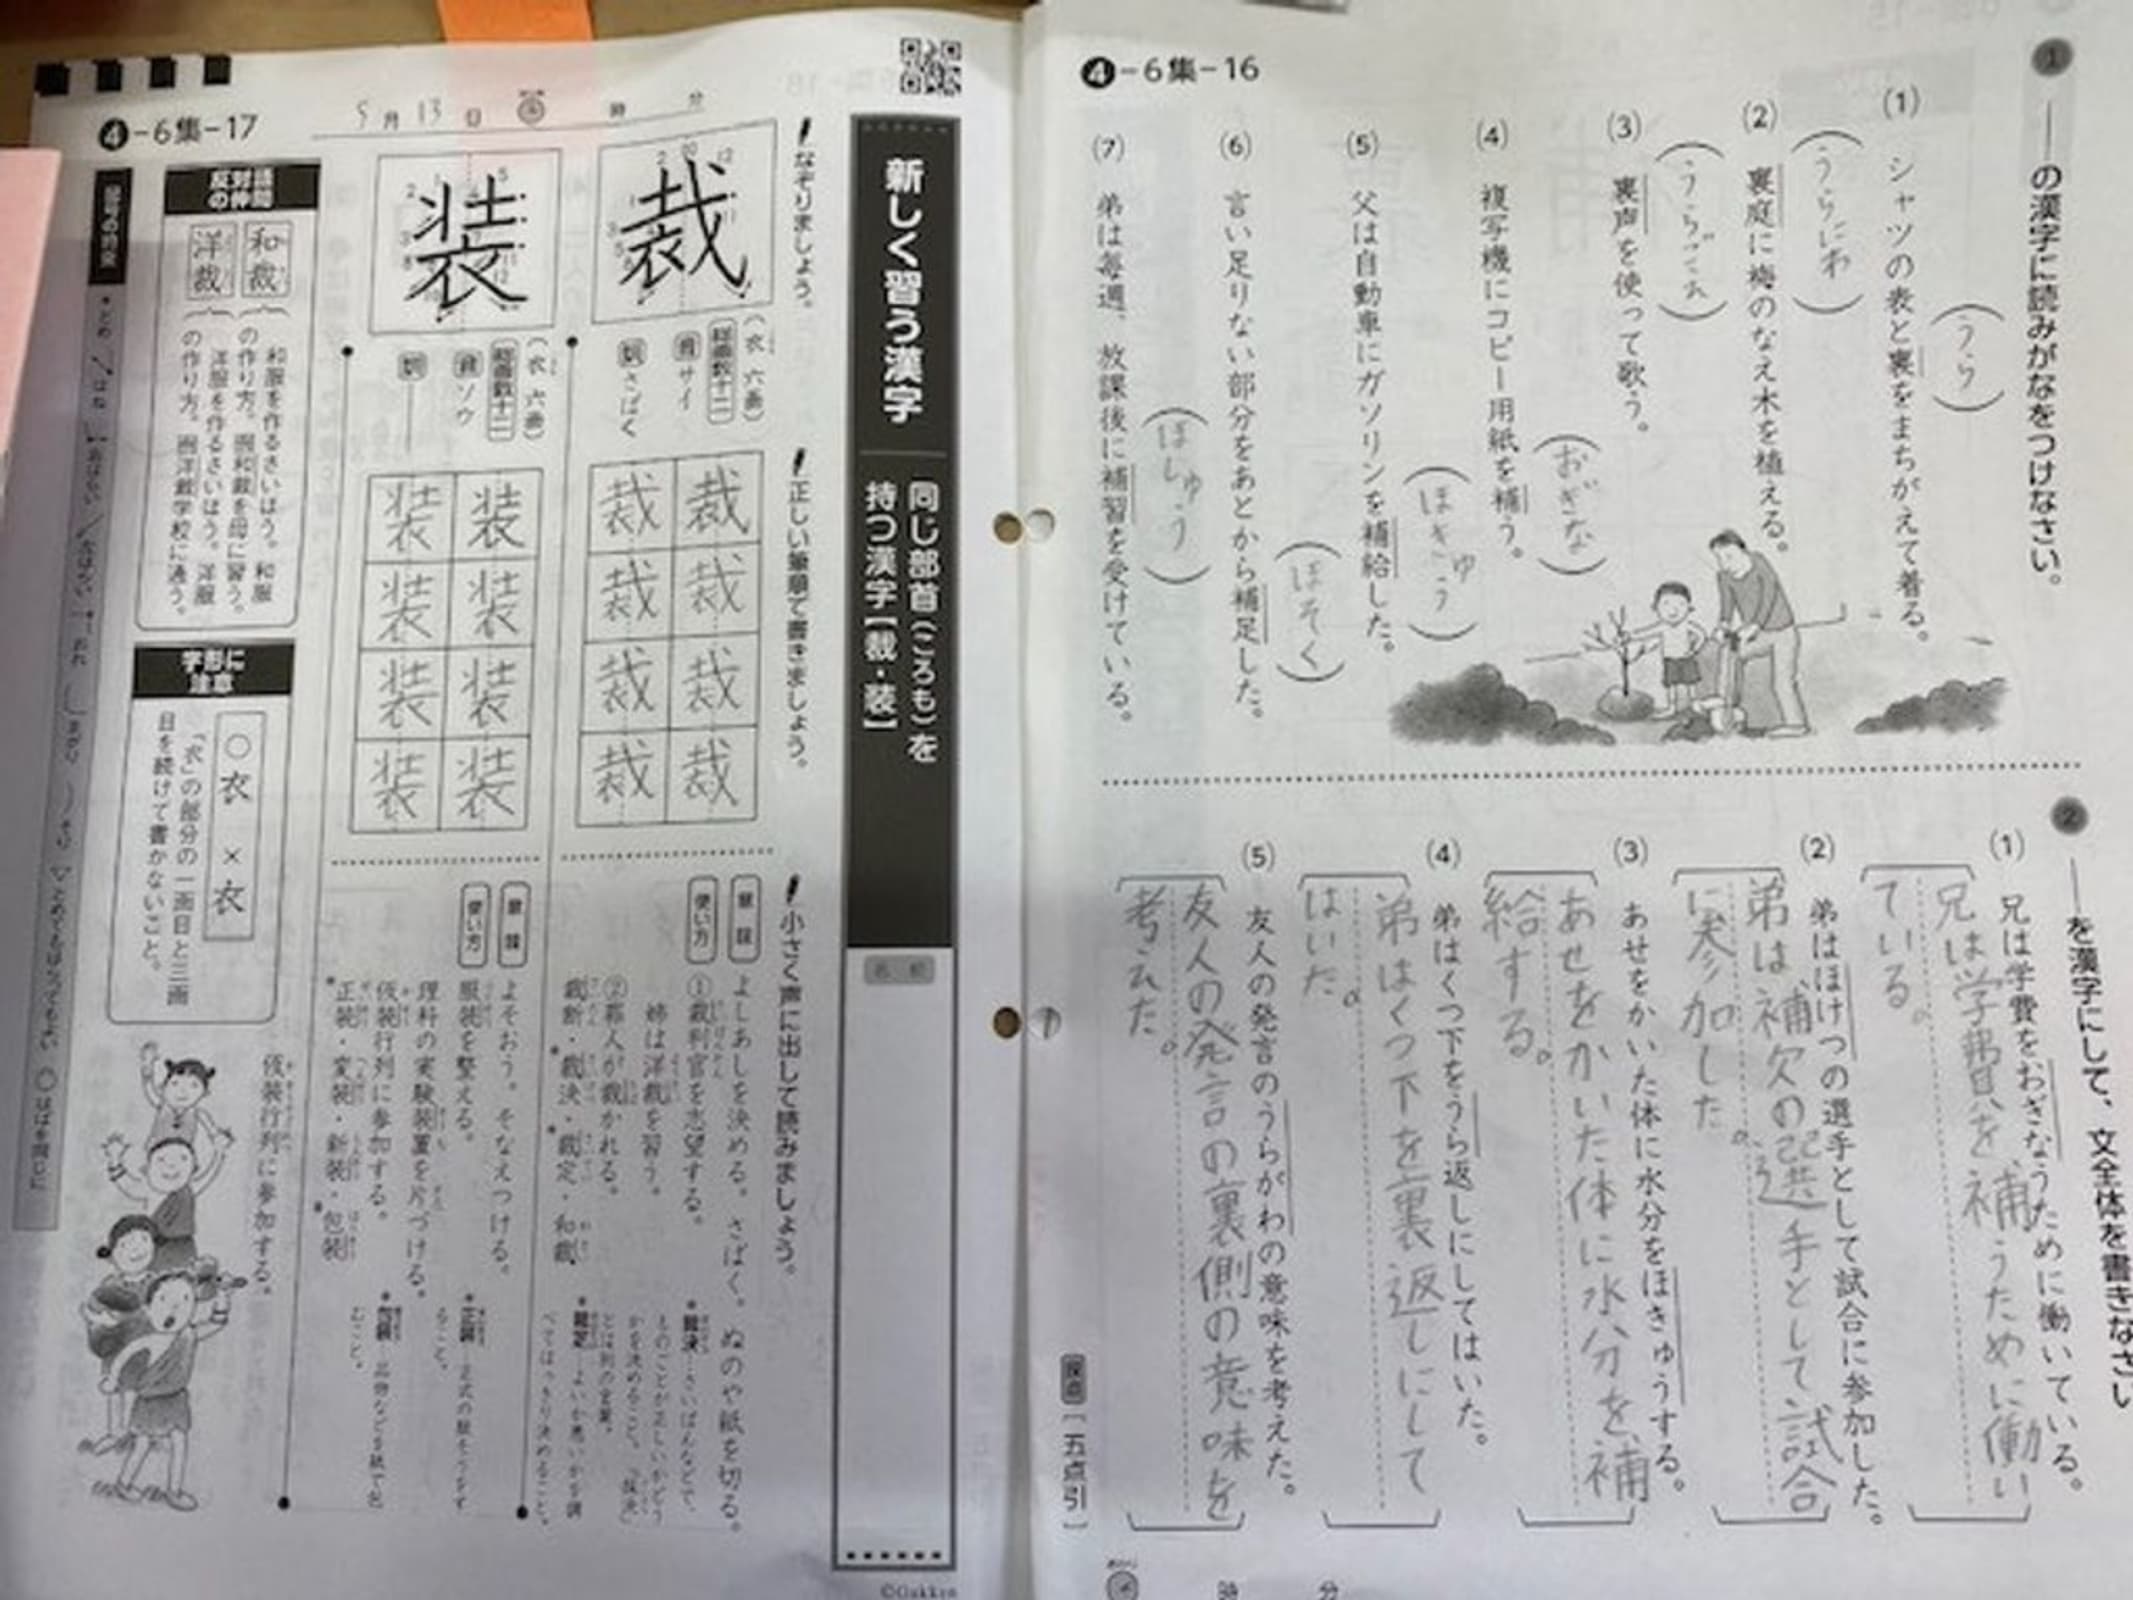 ❹-6集-16
❶ ――の漢字に読みがなをつけなさい。
(1) シャツの表と裏をまちがえて着る。
(うら)
(2) 裏庭に梅のなえ木を植える。
(うらにわ)
(3) 裏声を使って歌う。
(うらごえ)
(4) 複写機にコピー用紙を補う。
(おぎな)
(5) 父は自動車にガソリンを補給した。
(ほきゅう)
(6) 言い足りない部分をあとから補足した。
(ほそく)
(7) 弟は毎週、放課後に補習を受けている。
(ほしゅう)
❷ ――を漢字にして、文全体を書きなさい
(1) 兄は学費をおぎなうために働いている。
兄は学費を補うために働い
ている。
(2) 弟はほけつの選手として試合に参加した。
弟は補欠の選手として試合
に参加した。
(3) あせをかいた体に水分をほきゅうする。
あせをかいた体に水分を補
給する。
(4) 弟はくつ下をうら返しにしてはいた。
弟はくつ下を裏返しにして
はいた。
(5) 友人の発言のうらがわの意味を考えた。
友人の発言の裏側の意味を
考えた。
[五点引]
時 分
❹-6集-17
5月13日 時 分
新しく習う漢字
同じ部首(ころも)を
持つ漢字【裁・装】
名前
なぞりましょう。
裁
(衣 六画)
総画数十二
音 サイ
訓 さばく
装
(衣 六画)
総画数十二
音 ソウ
訓 ――
正しい筆順で書きましょう。
裁 裁
裁 裁
裁 裁
裁 裁
装 装
装 装
装 装
装 装
小さく声に出して読みましょう。
意味 よしあしを決める。さばく。ぬのや紙を切る。
使い方 ①裁判官を志望する。
姉は洋裁を習う。
②罪人が裁かれる。
裁断・裁決・裁定・和裁
裁決…さいばんなどで、
ものごとが正しいかどう
かを決めること。「採決」
とは別の言葉。
裁定…よいか悪いかを調
べてはっきり決めること。
意味 よそおう。そなえつける。
使い方 服装を整える。
理科の実験装置を片づける。
仮装行列に参加する。
正装・変装・新装・包装
正装…正式の服そうをす
ること。
包装…品物などを紙で包
むこと。
仮装行列に参加する。
反対語
の仲間
和裁
和服を作るさいほう。和服
の作り方。例和裁を母に習う。
洋裁
洋服を作るさいほう。洋服
の作り方。例洋裁学校に通う。
字形に
注意
○衣 ×衣
「衣」の部分の一画目と三画
目を続けて書かないこと。
©Gakken